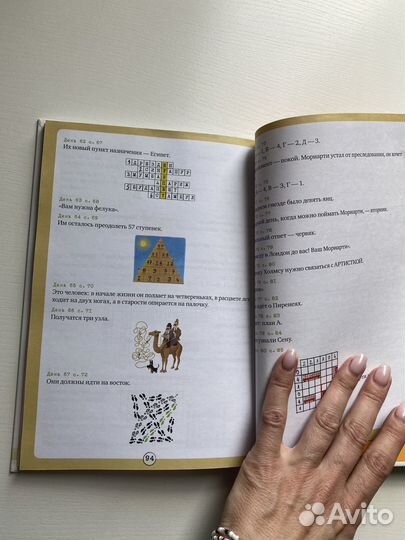 День 62 с. 67
Их новый пункт назначения — Египет.
День 63 с. 68
«Вам нужна фелука».
День 64 с. 69
Им осталось преодолеть 57 ступенек.
День 65 с. 70
Это человек: в начале жизни он ползает на четвереньках, в расцвете лет
ходит на двух ногах, а в старости опирается на палочку.
День 66 с. 71
Получатся три узла.
День 67 с. 72
Они должны идти на восток.
94
В — 4, Г — 2, Д — 3.
покой. Мориарти устал от преследования, он хочет
В — 3, Г — 1.
гнезде было девять яиц.
день, когда можно поймать Мориарти, — вторник.
ответ — червяк.
в Лондон до вас! Ваш Мориарти».
Холмсу нужно связаться с АРТИСТКОЙ.
о Пиренеях.
план А.
Сену.
Avito